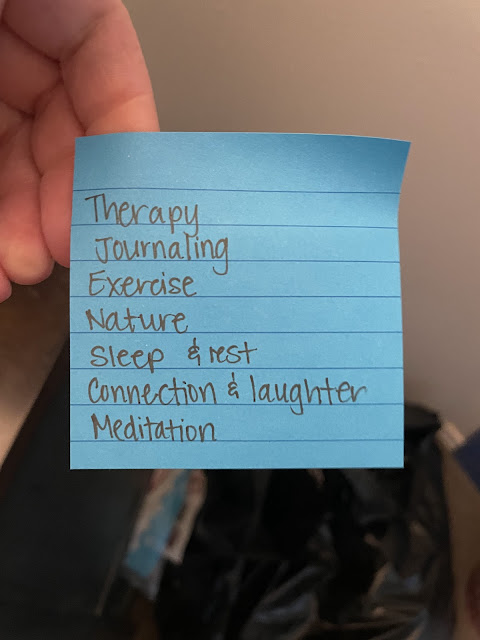 Therapy
Journaling
Exercise
Nature
Sleep & rest
Connection & laughter
Meditation